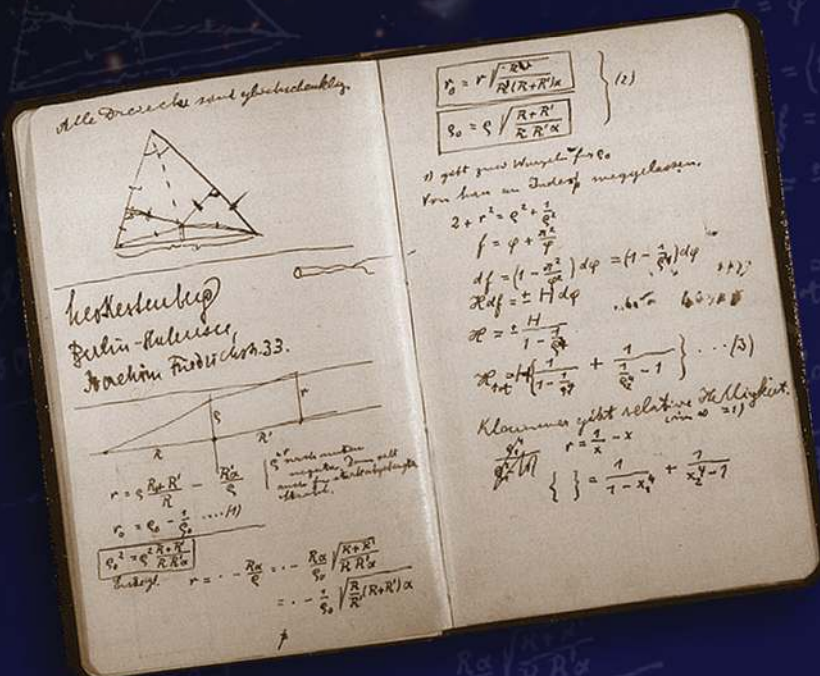 Alle Dreiecke sind gleichschenklig.
Leo Kestenberg
Berlin-Halensee,
Joachim Friedrichstr. 33.
ρ r
R R'
r = ρ (R+R')/R − R'α/ρ
r₀ = ρ₀ − 1/ρ₀ ....(1)
nach aussen
negativ. Dann gilt
auch für
ρ₀² = ρ² (R+R')/(R R'α)
r = · − Rα/ρ = · − Rα/ρ₀ √((R+R')/(R R'α))
= · − 1/ρ₀ √(R/R' (R+R')α)
r₀ = r √(R/(R'(R+R')α))
ρ₀ = ρ √((R+R')/(R R'α)) } (2)
1) gibt zwei Wurzeln für ρ₀
Von hier an Index weggelassen.
2 + r² = ρ² + 1/ρ²
f = φ + π²/φ
df = (1 − π²/φ²) dφ = (1 − 1/ρ⁴) dφ
ℋ df = ± H dφ
ℋ = ± H/(1 − 1/ρ⁴)
ℋtot = H { 1/(1 − 1/ρ₁⁴) + 1/(1/ρ₂⁴ − 1) } ... (3)
Klammer gibt relative Helligkeit.
(im ∞ = 1)
r = 1/x − x
{ } = 1/(1 − x₁⁴) + 1/(x₂⁴ − 1)